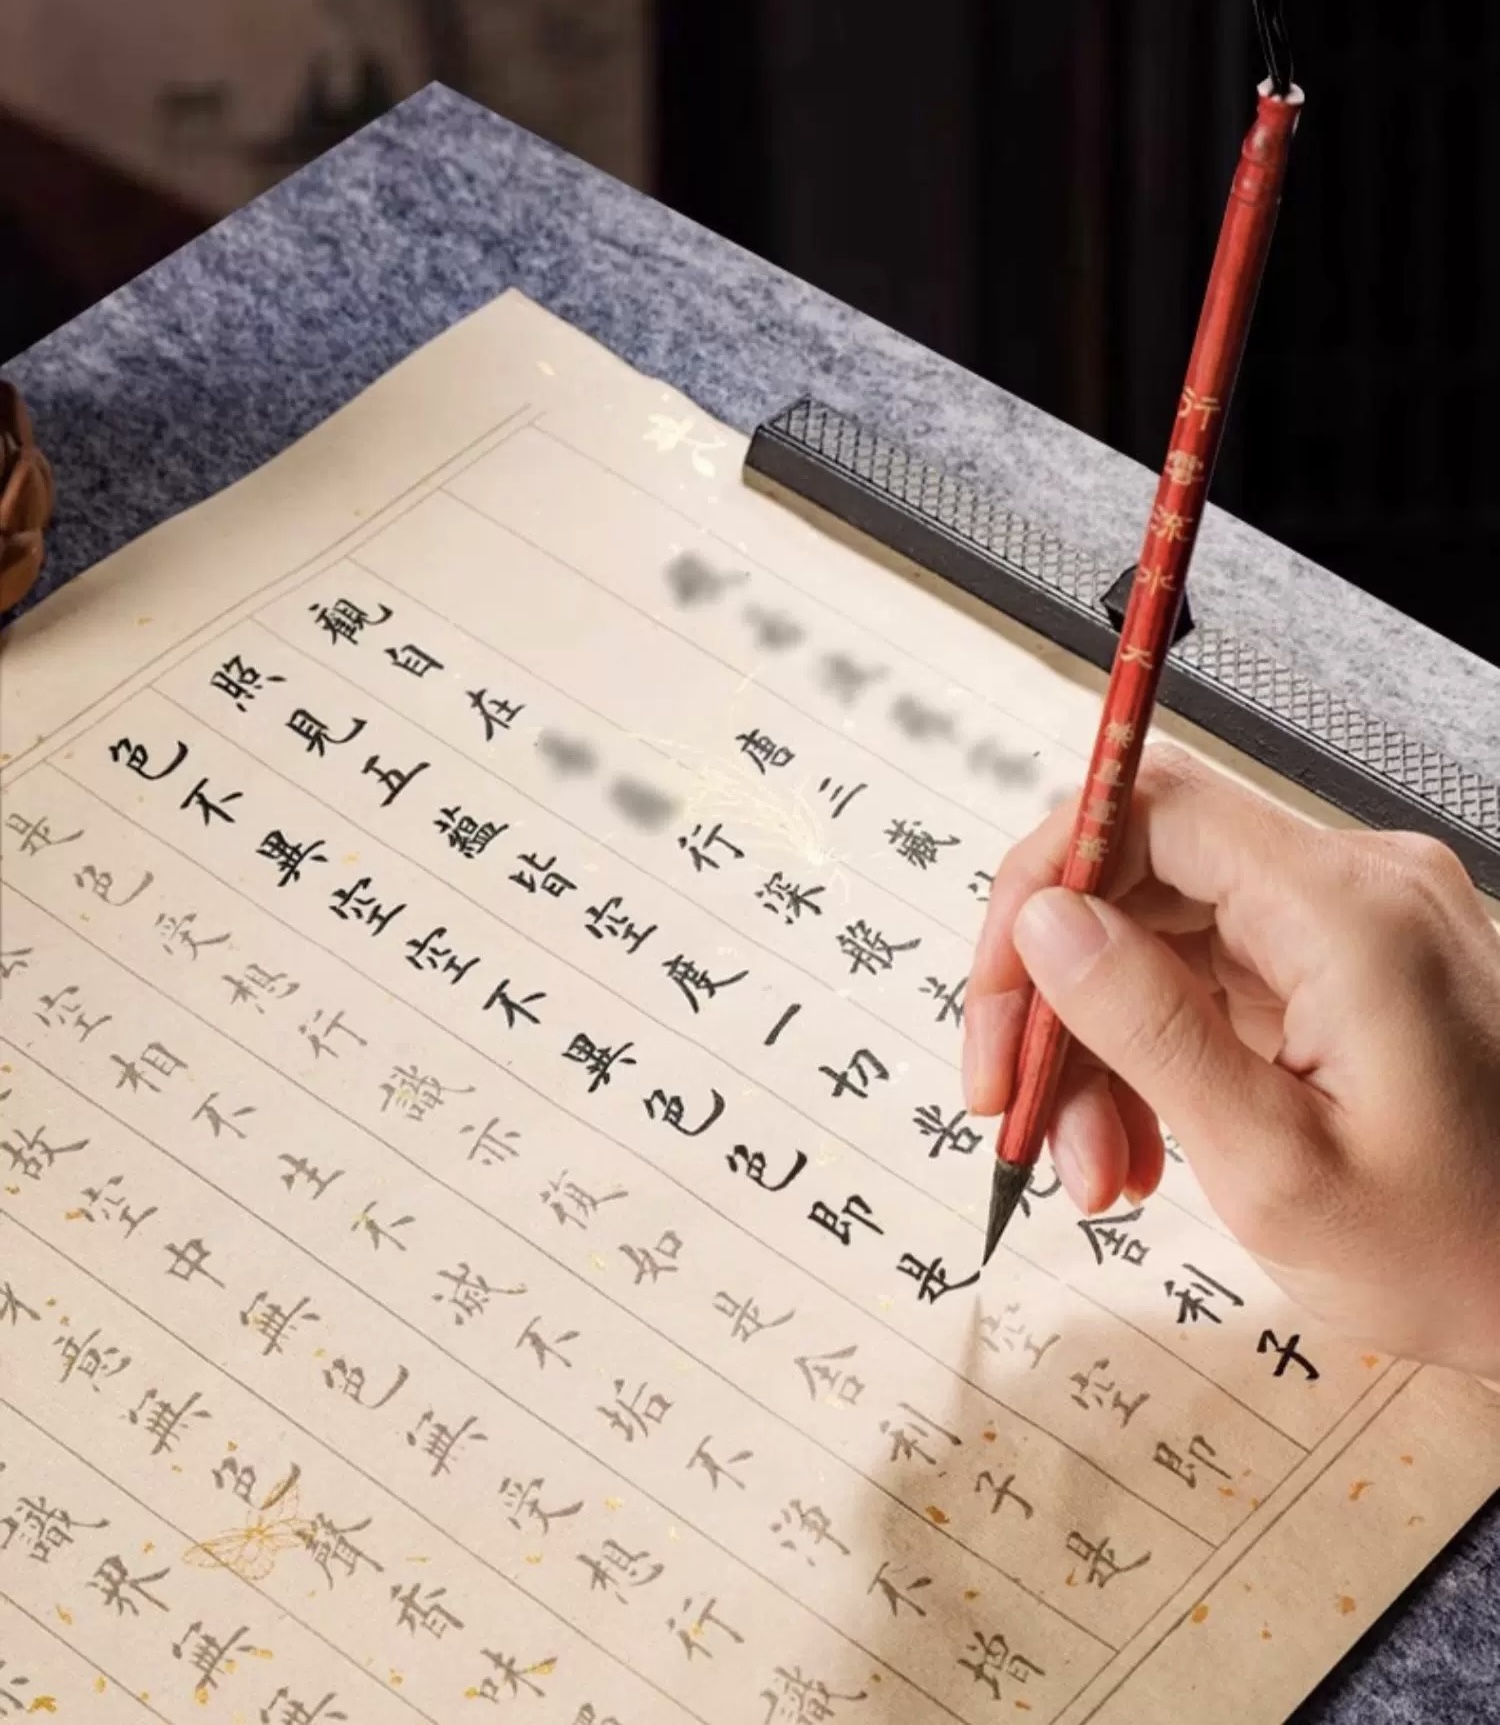 唐三藏
觀自在行深般若舍利子
照見五蘊皆空度一切苦厄
色不異空空不異色色即是空空即
是色受想行識亦復如是舍利子是
法空相不生不滅不垢不淨不增
故空中無色無受想行識
意無色聲香味
識界無無
行雲流水 大